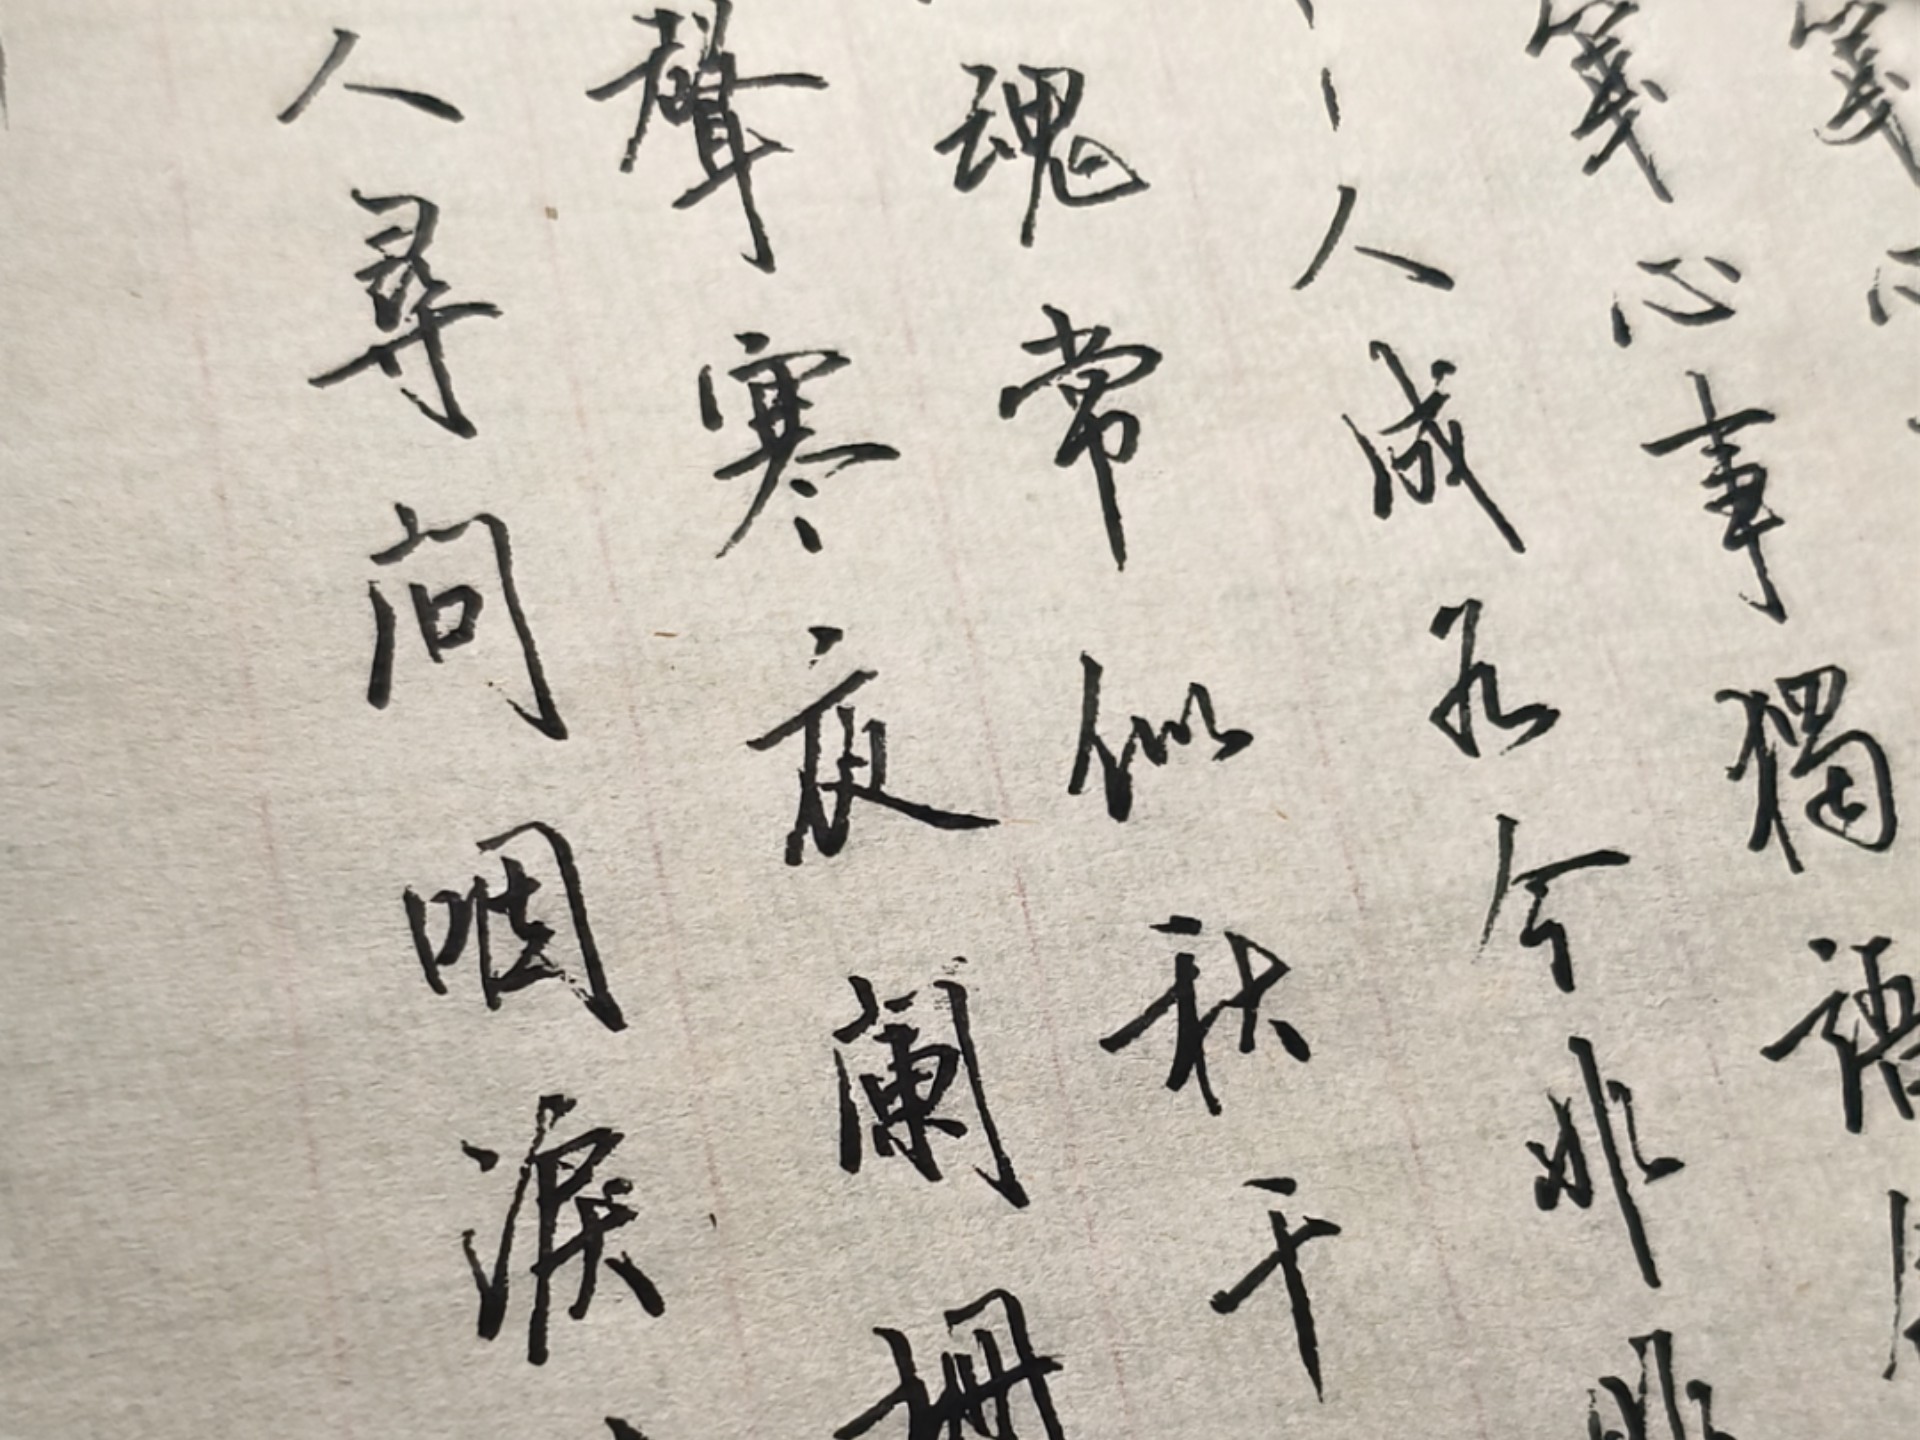 箋
箋心事獨語
人成各今非昨
魂常似秋千
聲寒夜闌珊
人尋問咽淚